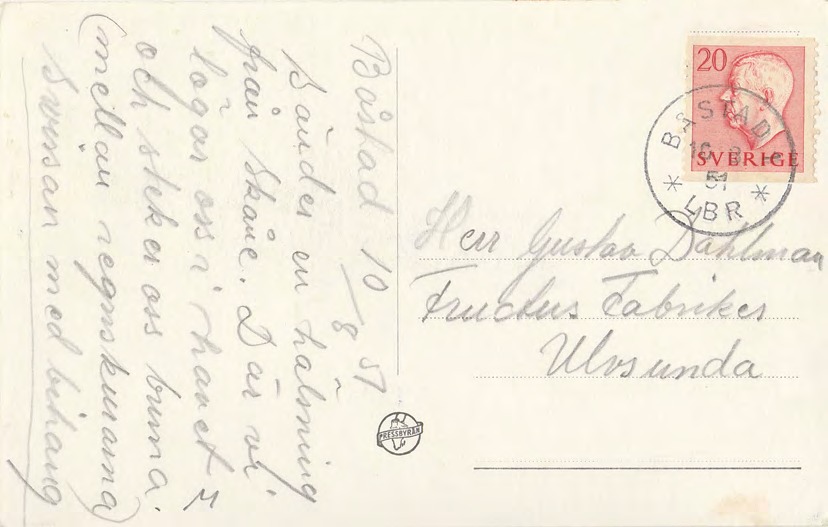 Båstad 10/8 51
Sänder en hälsning
från Skåne. Där vi
lögar oss i havet
och steker oss bruna.
(mellan regnskurarna)
Svensan med bihang
20
SVERIGE
BÅSTAD
51
LBR
Herr Gustav Dahlman
Fructus Fabriker
Ulvsunda
PRESSBYRÅN